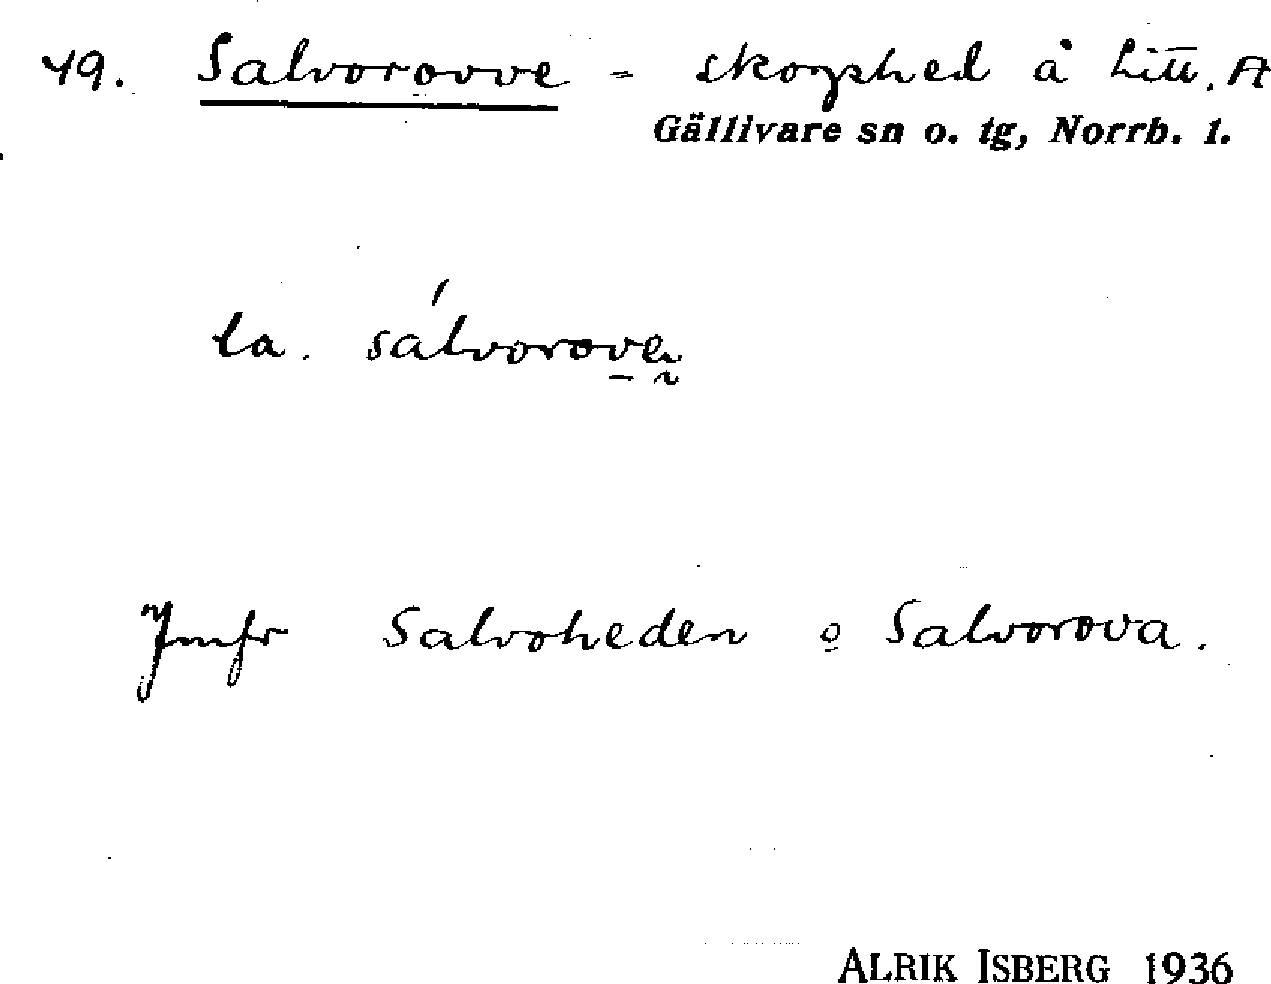 49. Salvorovve - skogshed å Litt. A
Gällivare sn o. tg, Norrb. l.
la. sálvorove
Jmfr Salvoheden o Salvorova.
ALRIK ISBERG 1936